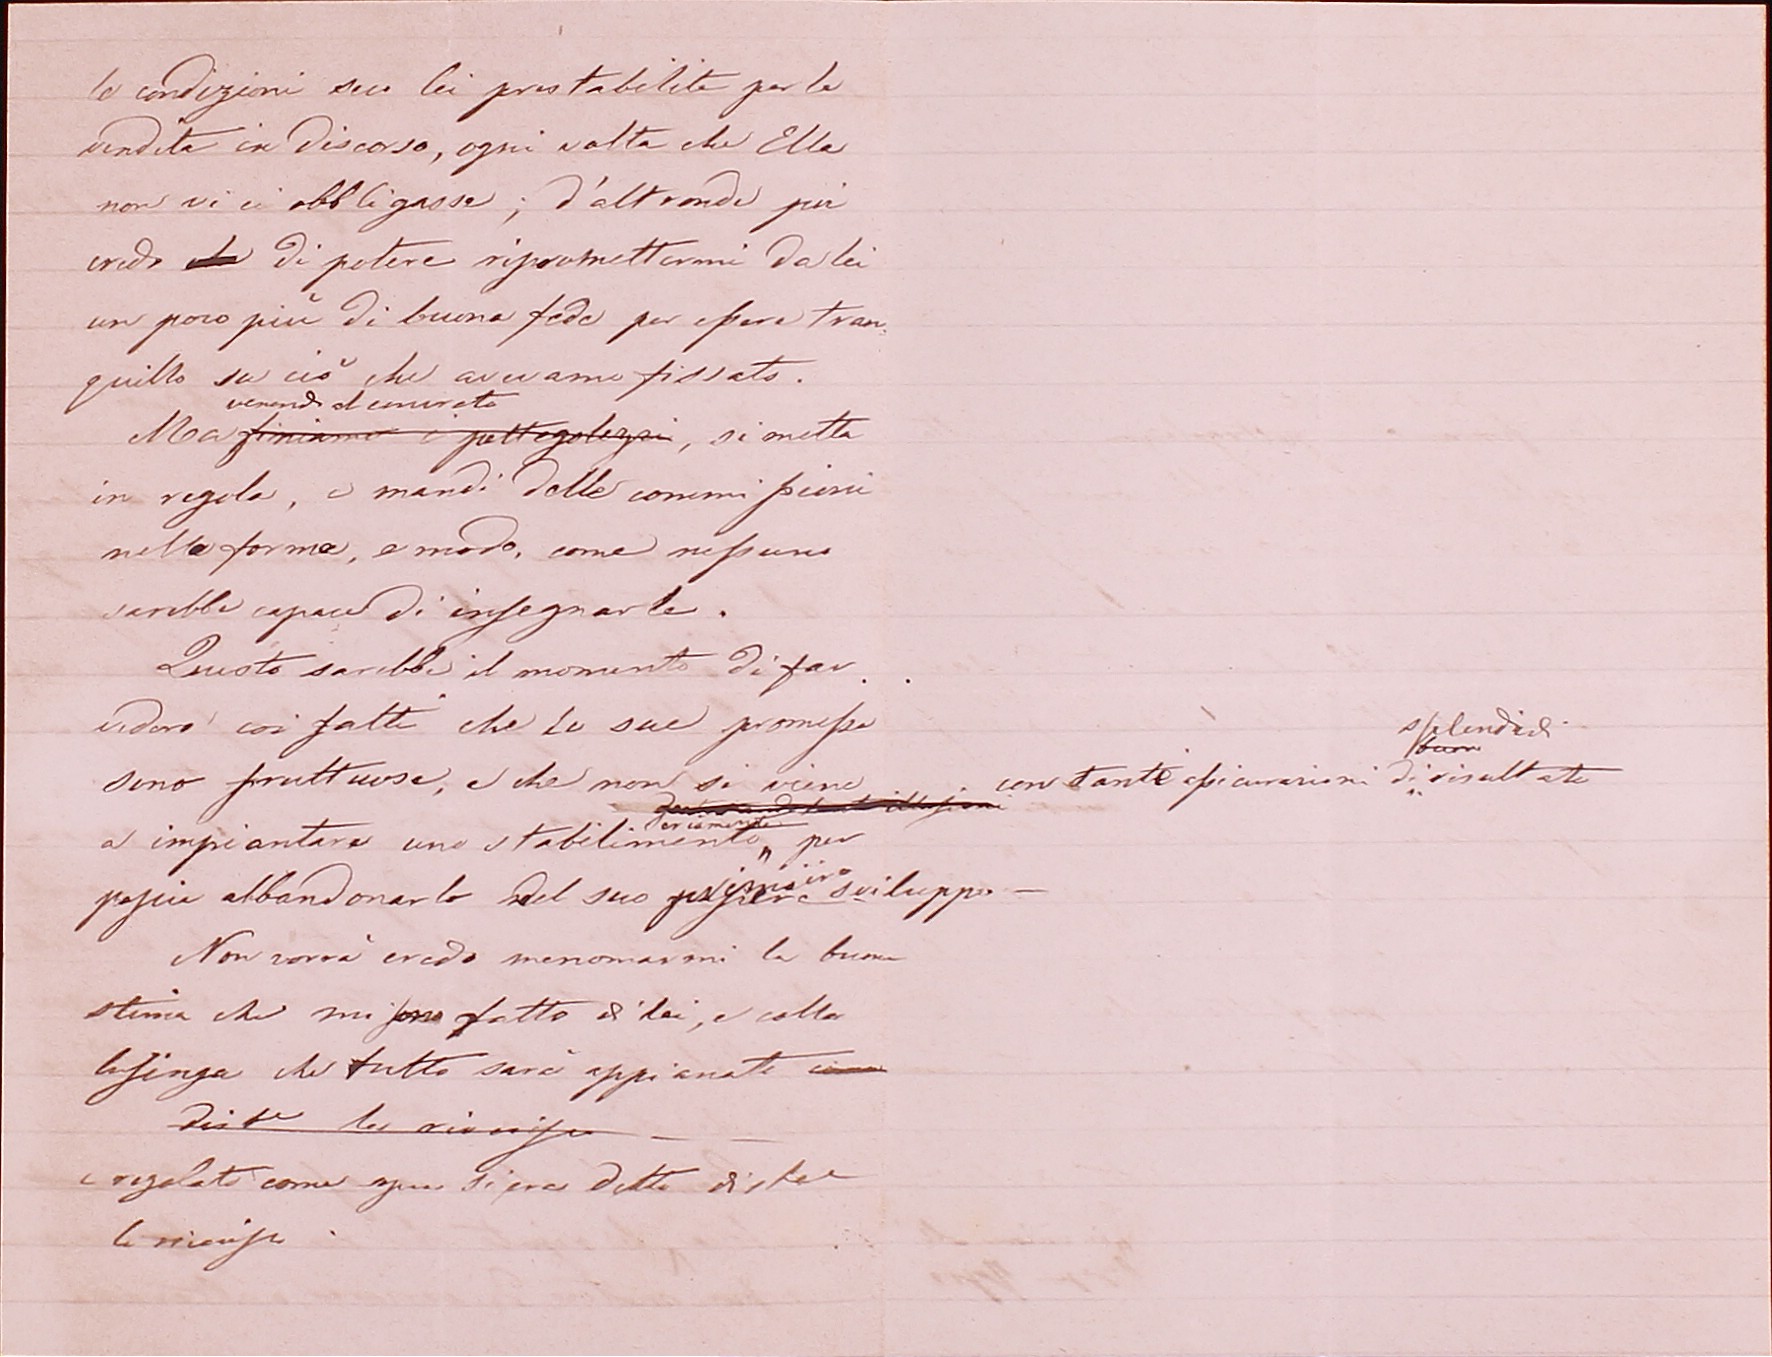 le condizioni seco lei prestabilite per la
vendita in discorso, ogni volta che Ella
non vi ci obbligasse; d'altronde più
credo che di potere ripromettermi da lei
un poco più di buona fede per essere tran-
quillo su ciò che avevamo fissato.
venendo al concreto
Ma finiamo i pettegolezzi, si metta
in regola, e mandi delle commissioni
nella forma, e modo, come nessuno
sarebbe capace di insegnarle.
Questo sarebbe il momento di far
vedere coi fatti che le sue promesse
splendidi
buoni
sono fruttuose, e che non si viene
con tante assicurazioni di risultato
a impiantare uno stabilimento per
poscia abbandonarlo del suo primario sviluppo —
Non vorrà credo menomarmi la buona
stima che mi sono fatto di lei, e colla
lusinga che tutto sarà appianato
dist.e la riverisco
e regolato come si era detto dist.e
la riverisco